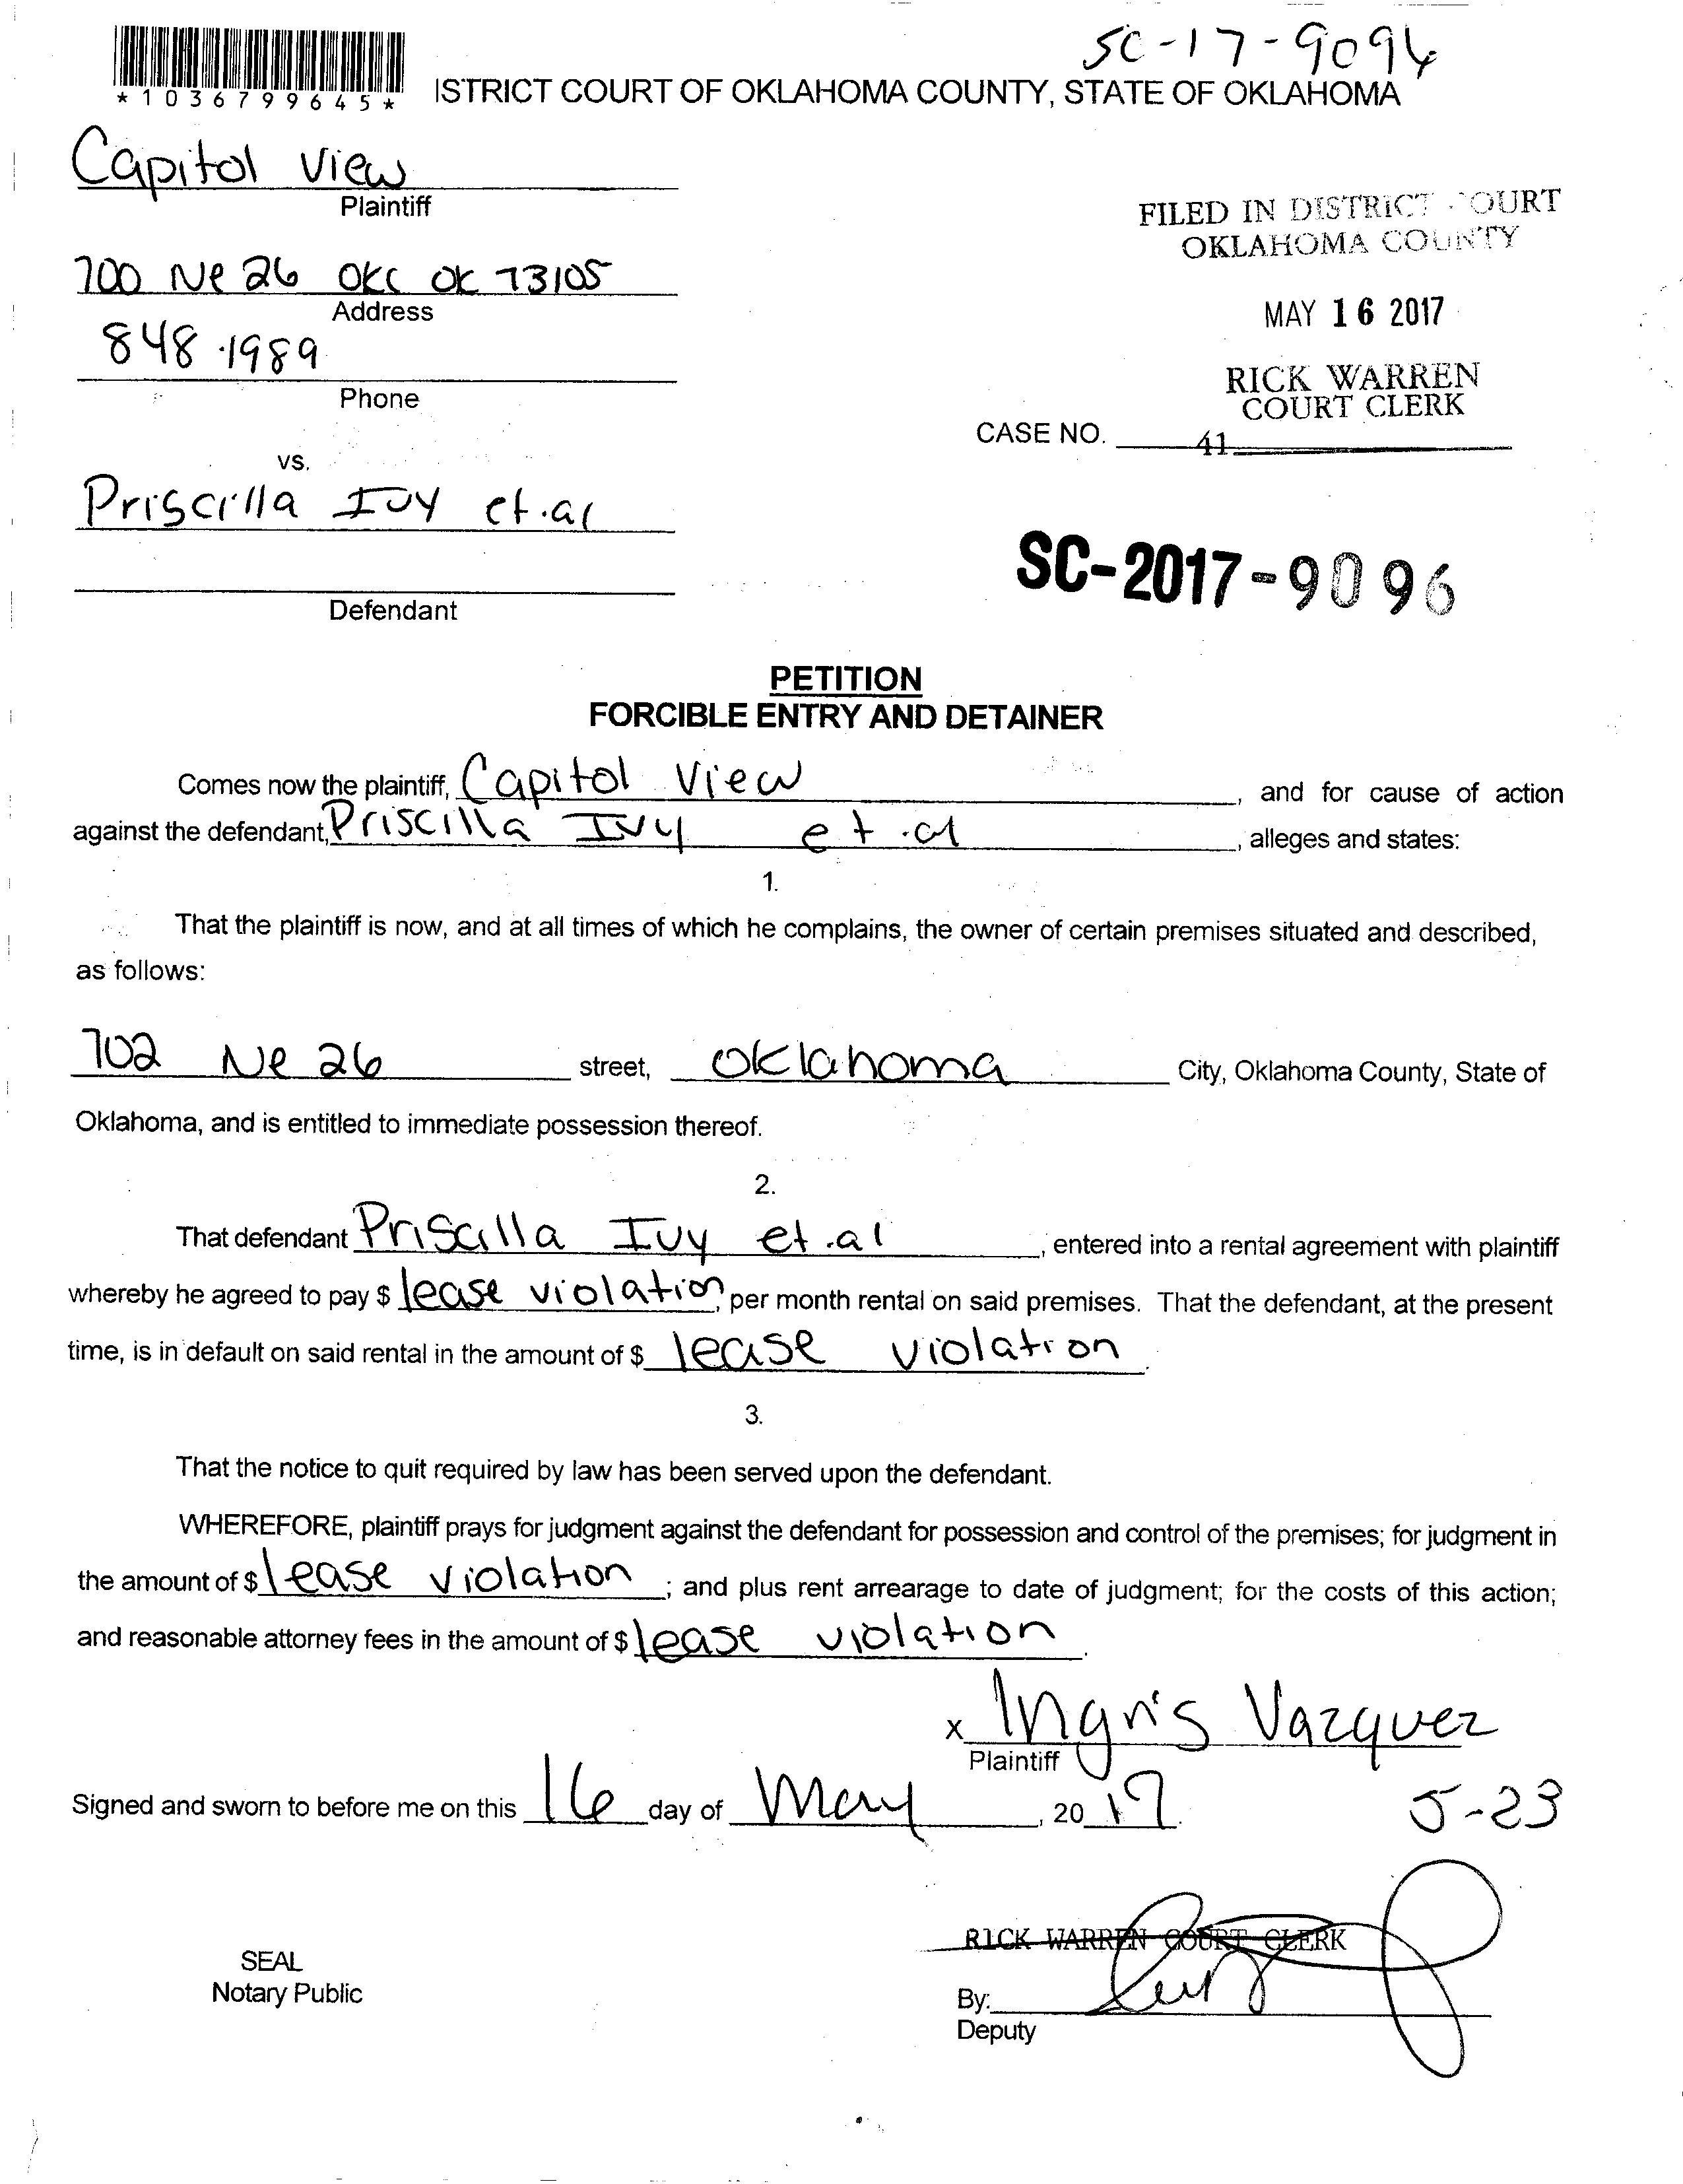 SC-17-9094
*1036799645*
ISTRICT COURT OF OKLAHOMA COUNTY, STATE OF OKLAHOMA
Capitol View
Plaintiff
FILED IN DISTRICT COURT
OKLAHOMA COUNTY
700 Ne 26 OKC OK 73105
Address
MAY 16 2017
848.1989
Phone
RICK WARREN
COURT CLERK
CASE NO.
41
vs.
Priscilla Ivy et.al
SC-2017-9096
Defendant
PETITION
FORCIBLE ENTRY AND DETAINER
Comes now the plaintiff, Capitol View, and for cause of action
against the defendant, Priscilla Ivy et.al, alleges and states:
1.
That the plaintiff is now, and at all times of which he complains, the owner of certain premises situated and described,
as follows:
702 Ne 26 street, Oklahoma City, Oklahoma County, State of
Oklahoma, and is entitled to immediate possession thereof.
2.
That defendant Priscilla Ivy et.al, entered into a rental agreement with plaintiff
whereby he agreed to pay $ lease violation, per month rental on said premises. That the defendant, at the present
time, is in default on said rental in the amount of $ lease violation.
3.
That the notice to quit required by law has been served upon the defendant.
WHEREFORE, plaintiff prays for judgment against the defendant for possession and control of the premises; for judgment in
the amount of $ lease violation; and plus rent arrearage to date of judgment; for the costs of this action;
and reasonable attorney fees in the amount of $ lease violation.
x Ingris Vazquez
Plaintiff
Signed and sworn to before me on this 16 day of May, 2017
5-23
RICK WARREN COURT CLERK
SEAL
Notary Public
By:
Deputy